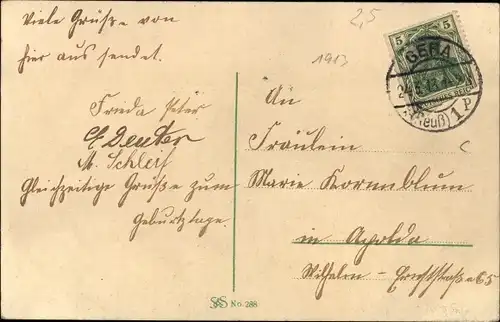 Viele Grüße von
hier aus sendet.
Frieda Peter
E Deuter
M. Schlerf
Gleichzeitige Grüße zum
Geburtstage.
2,5
1913
5 5
GERA
(Reuß) 1 P
An
Fräulein
Marie Kornblum
in Apolda
Wilhelm-Ernststraße 65
S&S No. 288